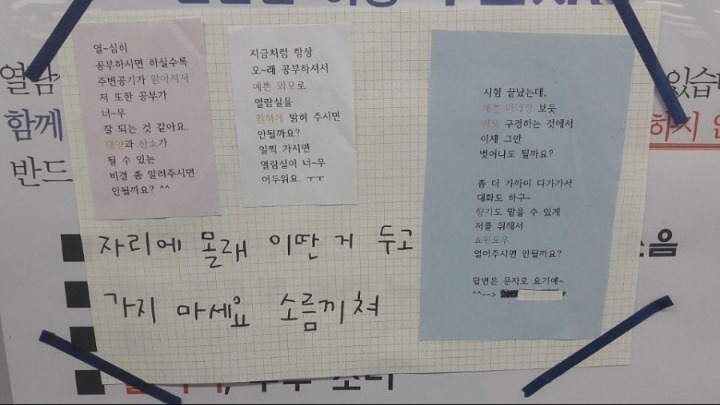 열~심히
공부하시면 하실수록
주변공기가 맑아져서
저 또한 공부가
너~무
잘 되는 것 같아요.
태양과 산소가
될 수 있는
비결 좀 알려주시면
안될까요? ^^
지금처럼 항상
오~래 공부하셔서
예쁜 외모로
열람실을
환하게 밝혀 주시면
안될까요?
일찍 가시면
열람실이 너~무
어두워요. ㅜㅜ
시험 끝났는데,
예쁜 마네킹 보듯
외모 구경하는 것에서
이제 그만
벗어나도 될까요?
좀 더 가까이 다가가서
대화도 하구~
향기도 맡을 수 있게
저를 위해서
쇼윈도우
열어주시면 안될까요?
답변은 문자로 요기에~
^^-->
자리에 몰래 이딴 거 두고
가지 마세요 소름끼쳐
열람
함께
반드
있습
하지 않
소음